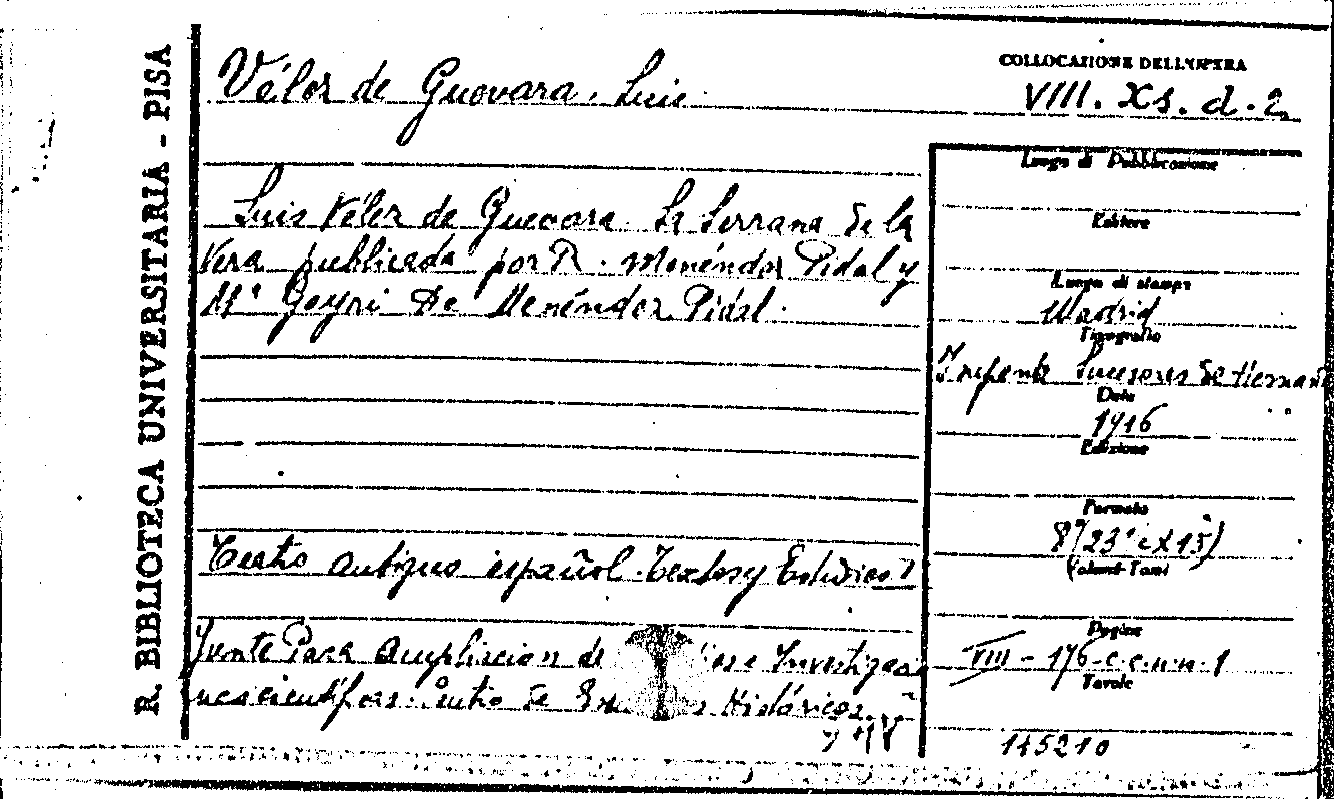 R. BIBLIOTECA UNIVERSITARIA - PISA
Vélez de Guevara. Luis
COLLOCAZIONE DELL'OPERA
VIII. XS. d. 2
Luis Vélez de Guevara. La Serrana de la
Vera publicada por R. Menéndez Pidal y
Mª Goyri De Menéndez Pidal.
Teatro antiguo español. Textos y Estudios I
Junta Para ampliacion de e Investigacio
nes científicas. Centro de Históricos
Luogo di Pubblicazione
Editore
Luogo di stampa
Madrid
Tipografia
Imprenta Sucesores de Hernand
Data
1916
Edizione
Formato
8º(23 x 15)
Volumi-Tomi
Pagine
VIII - 176 - c.c.n.n. 1
Tavole
145210